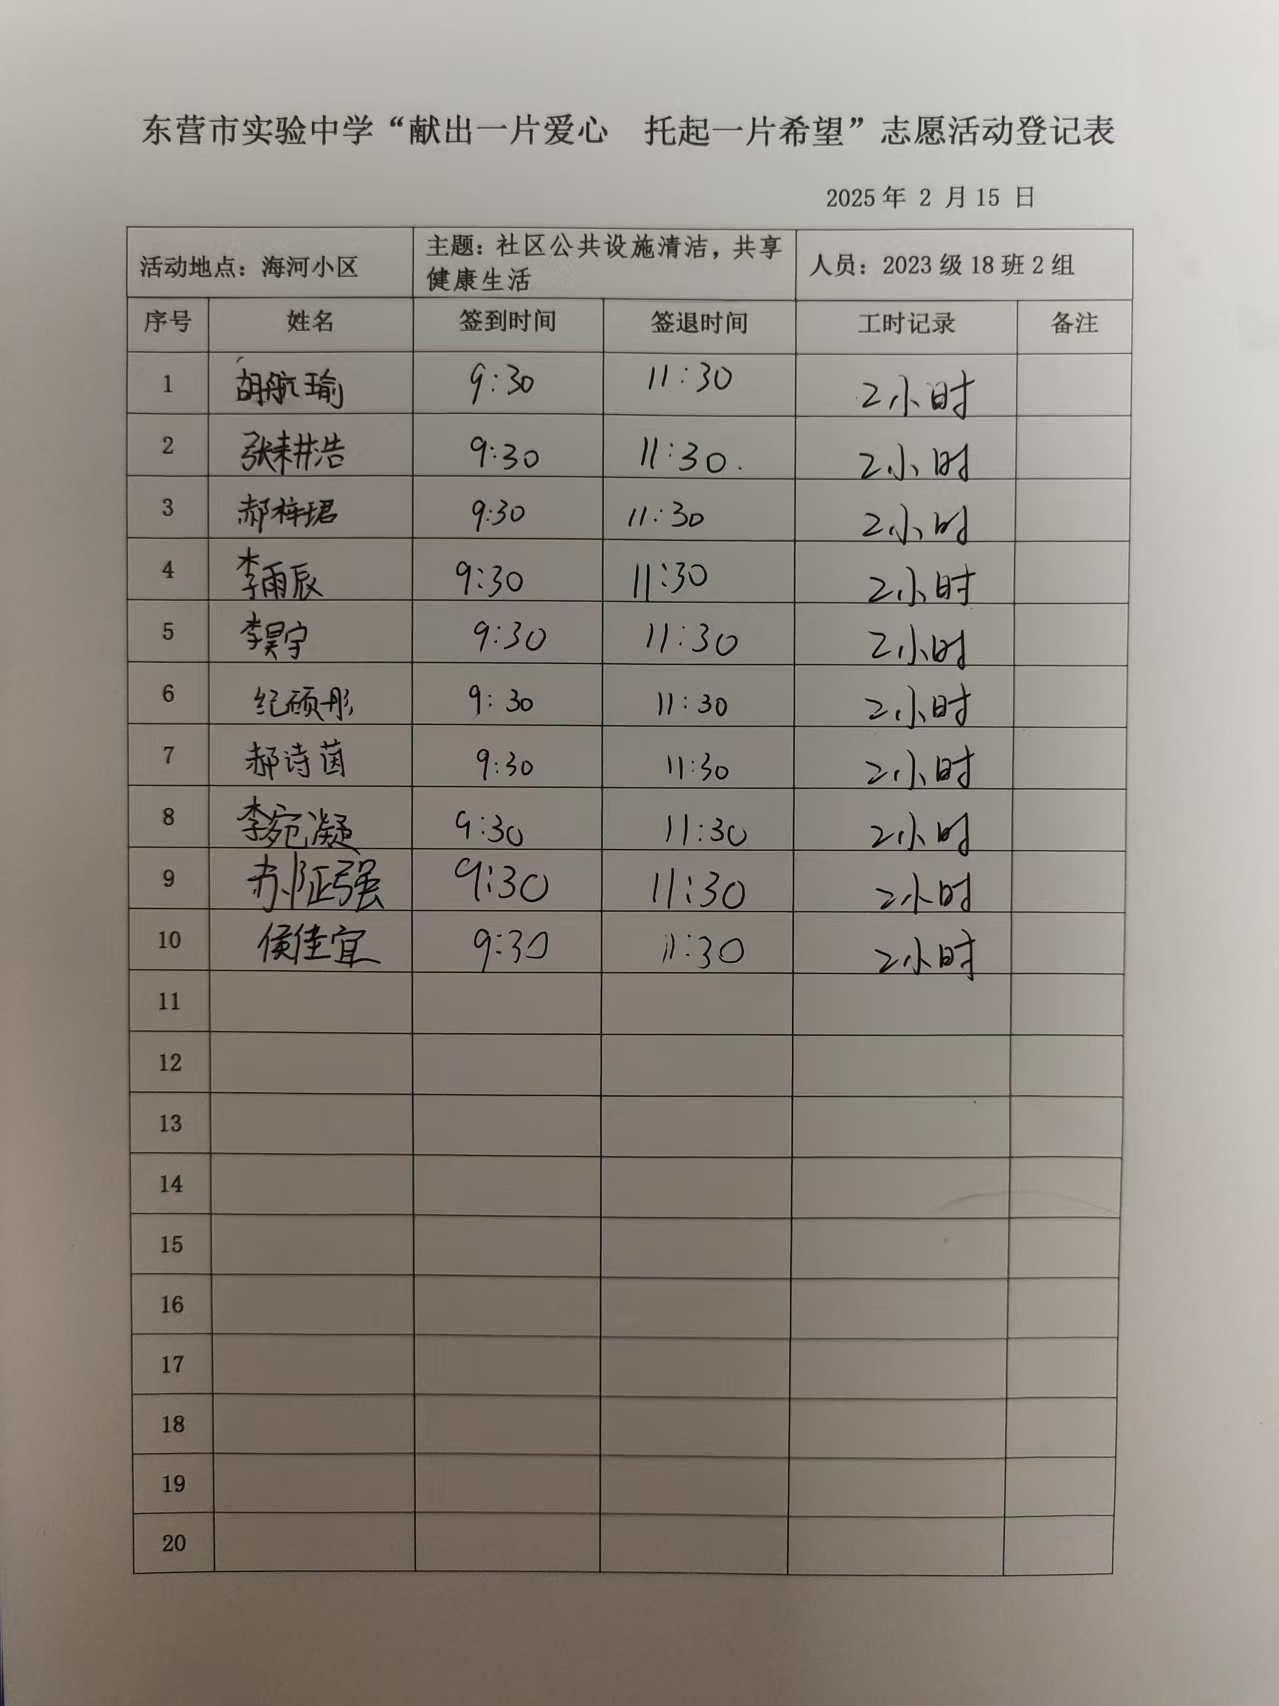 东营市实验中学“献出一片爱心 托起一片希望”志愿活动登记表
2025年 2 月15 日
活动地点：海河小区 主题：社区公共设施清洁，共享健康生活 人员：2023级18班2组
序号 姓名 签到时间 签退时间 工时记录 备注
1 胡航瑜 9:30 11:30 2小时
2 张耕浩 9:30 11:30. 2小时
3 郝梓珺 9:30 11:30 2小时
4 李雨辰 9:30 11:30 2小时
5 李昊宇 9:30 11:30 2小时
6 纪硕彤 9:30 11:30 2小时
7 郝诗茵 9:30 11:30 2小时
8 李宛凝 9:30 11:30 2小时
9 9:30 11:30 2小时
10 侯佳宜 9:30 11:30 2小时
11
12
13
14
15
16
17
18
19
20